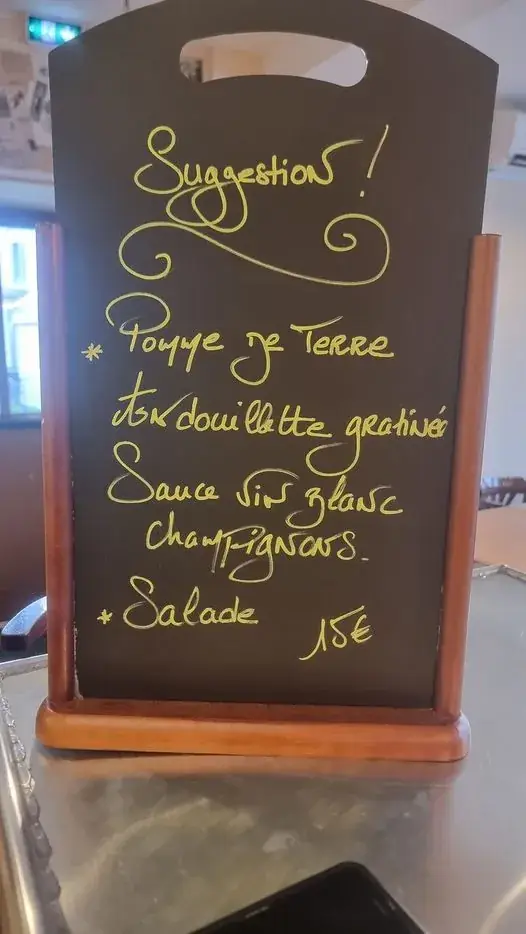 Suggestion !
* Pomme de Terre
Andouillette gratinée
Sauce vin blanc
champignons.
* Salade
15€